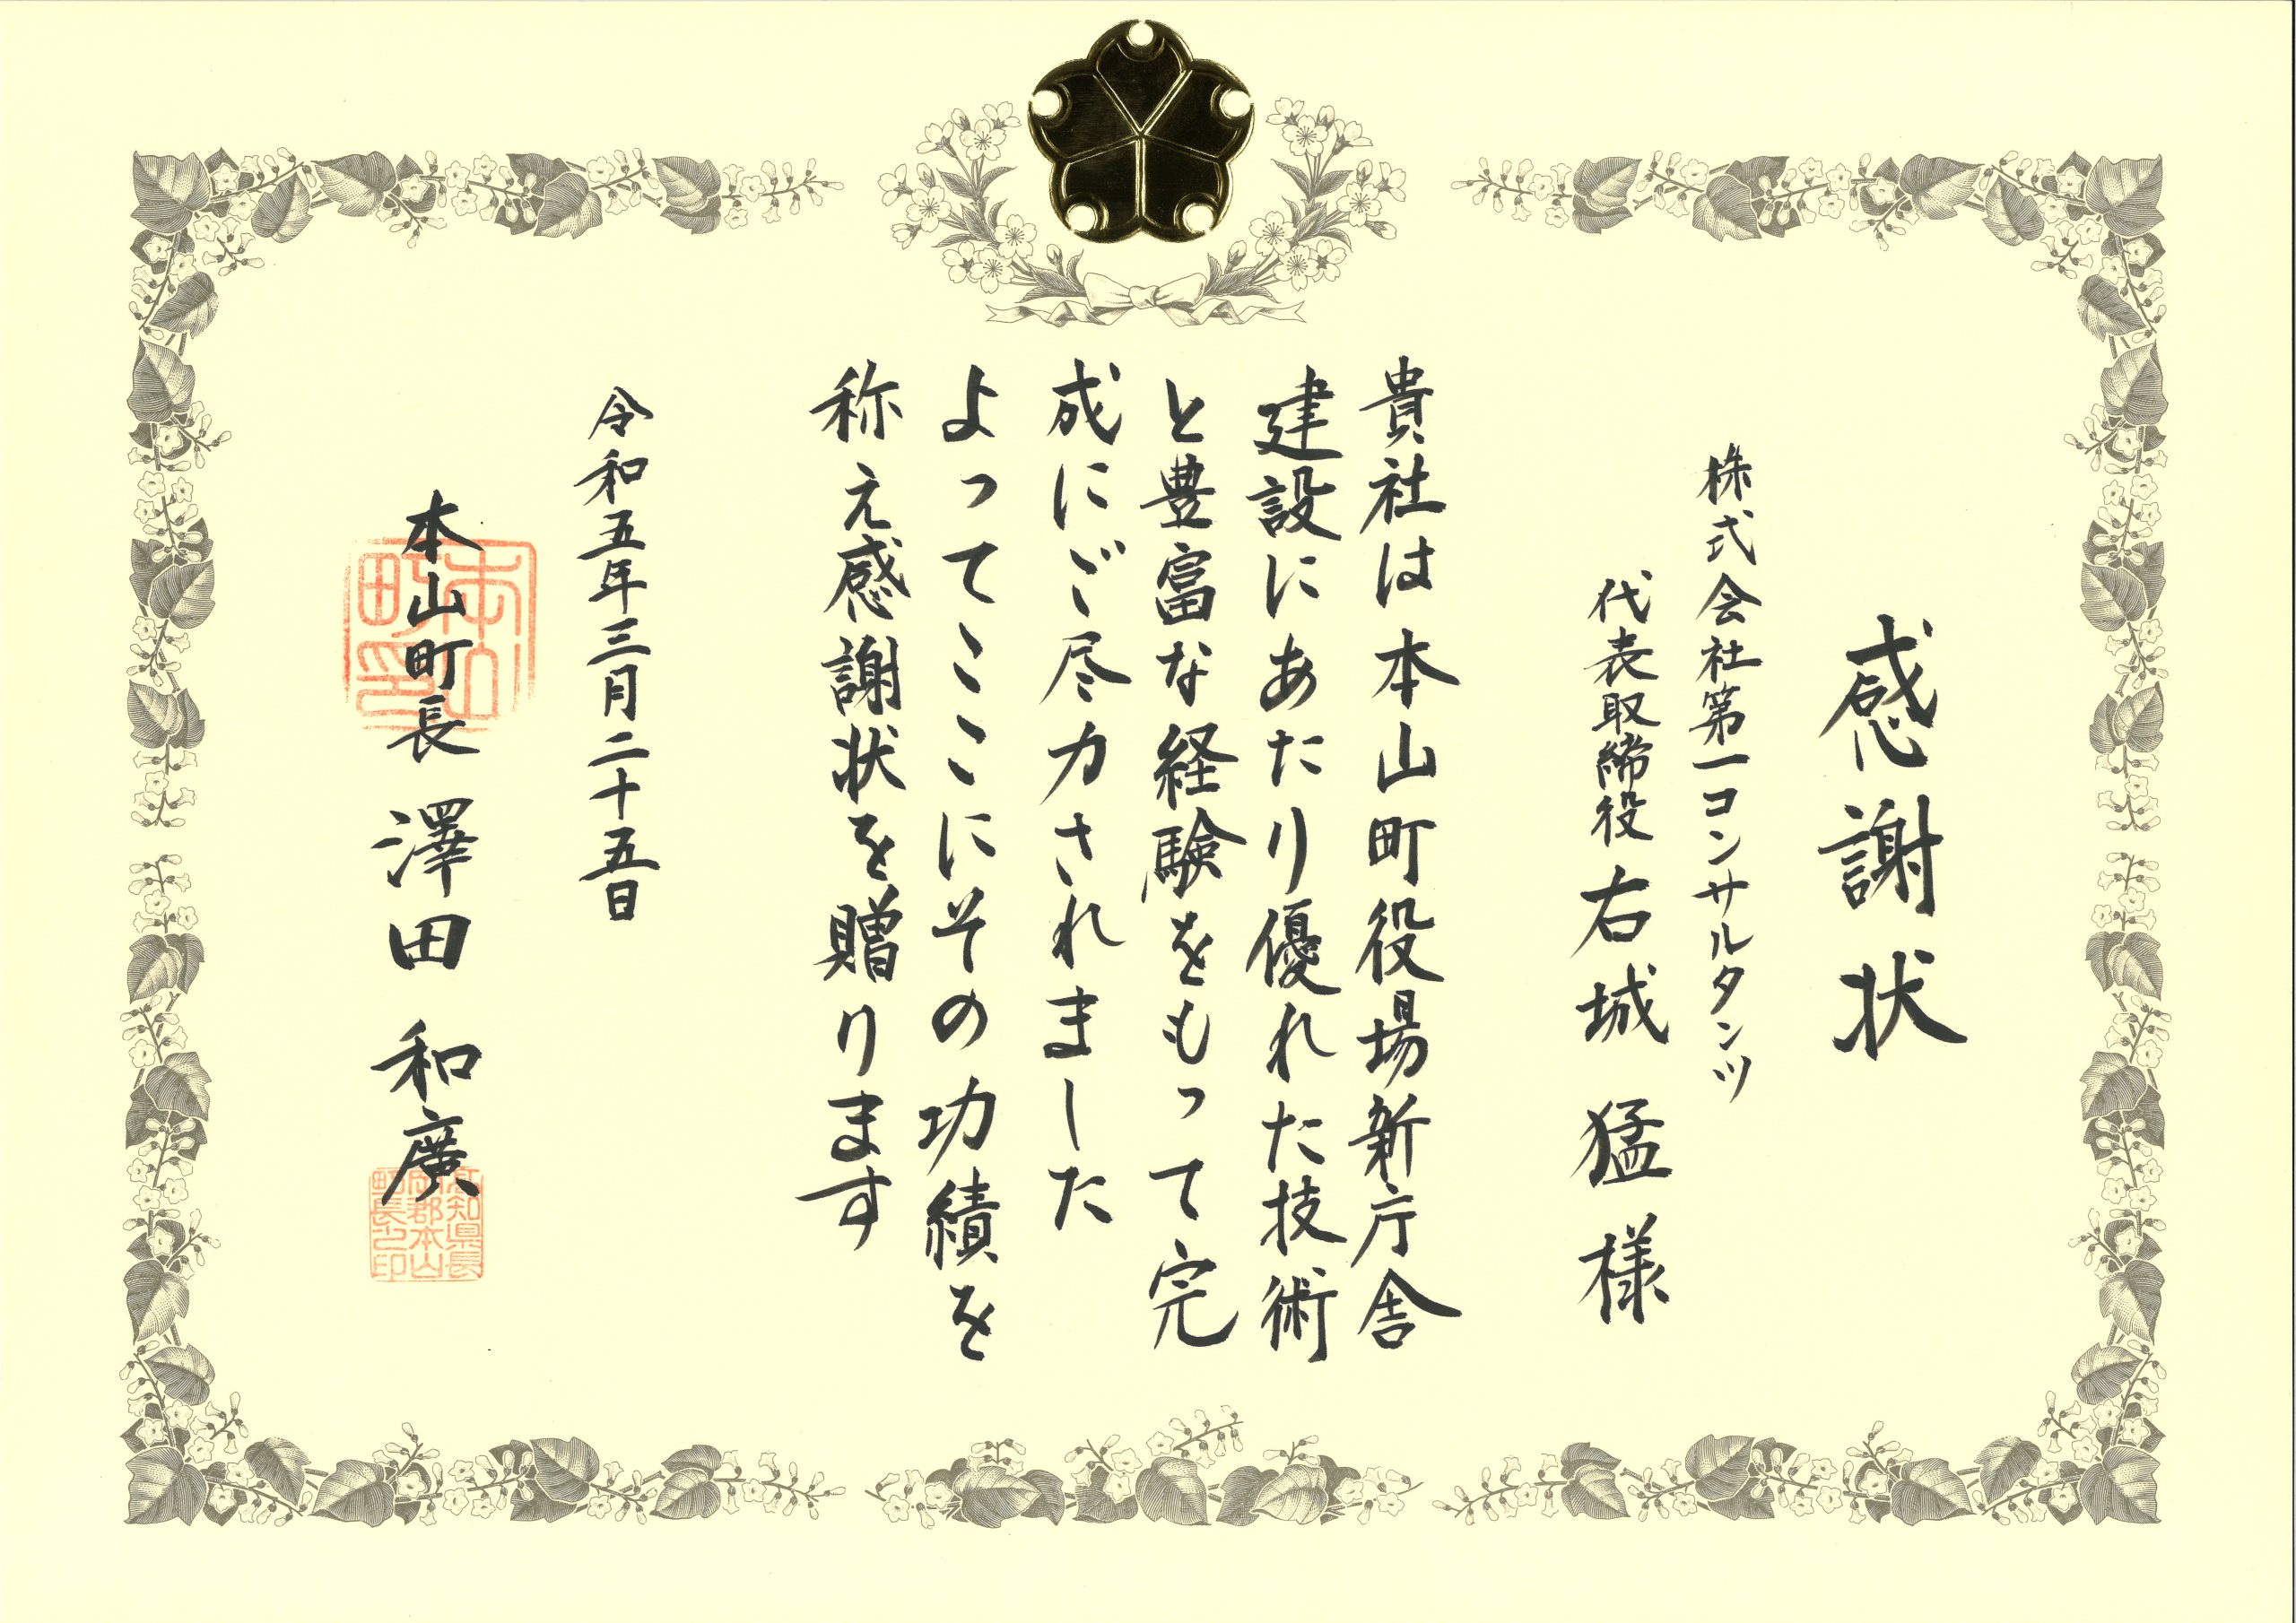 感謝状
株式会社第一コンサルタンツ
代表取締役 右城 猛 様
貴社は本山町役場新庁舎
建設にあたり優れた技術
と豊富な経験をもって完
成にご尽力されました
よってここにその功績を
称え感謝状を贈ります
令和五年三月二十五日
本山町長 澤田 和廣
本山
町印
高知県長
岡郡本山
町長之印